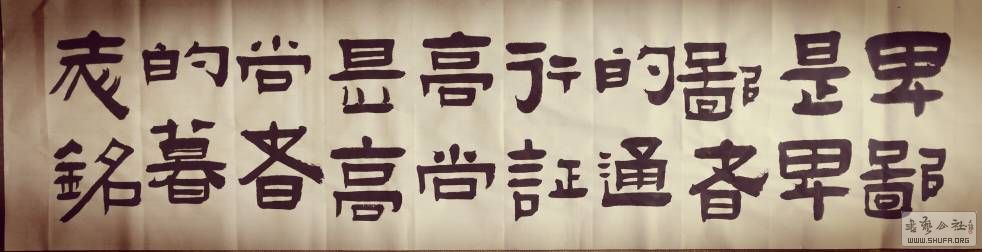 卑鄙
是卑
鄙者
的通
行証
高尚
是高
尚者
的暮
銘
书艺公社
WWW.SHUFA.ORG